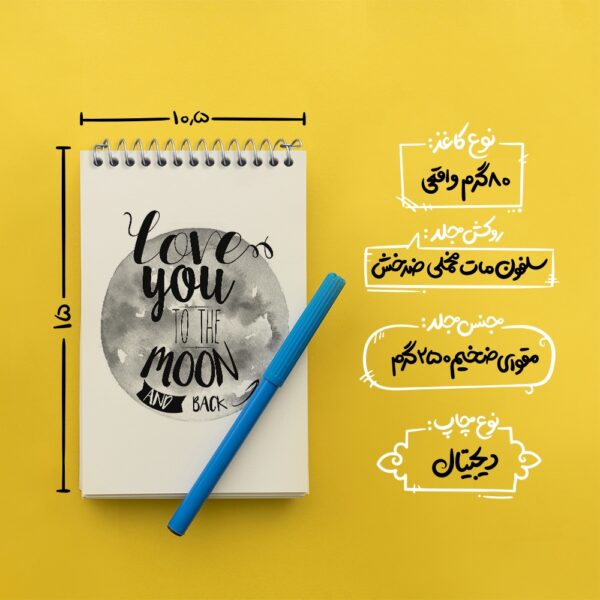 ۱۰,۵
۱۵
Love
you
TO THE
MOON
AND BACK
نوع کاغذ:
۸۰گرم واقعی
روکش مجلد:
سلفون مات مخملی ضدخش
جنس مجلد:
مقوای ضخیم ۲۵۰گرم
نوع چاپ:
دیجیتال